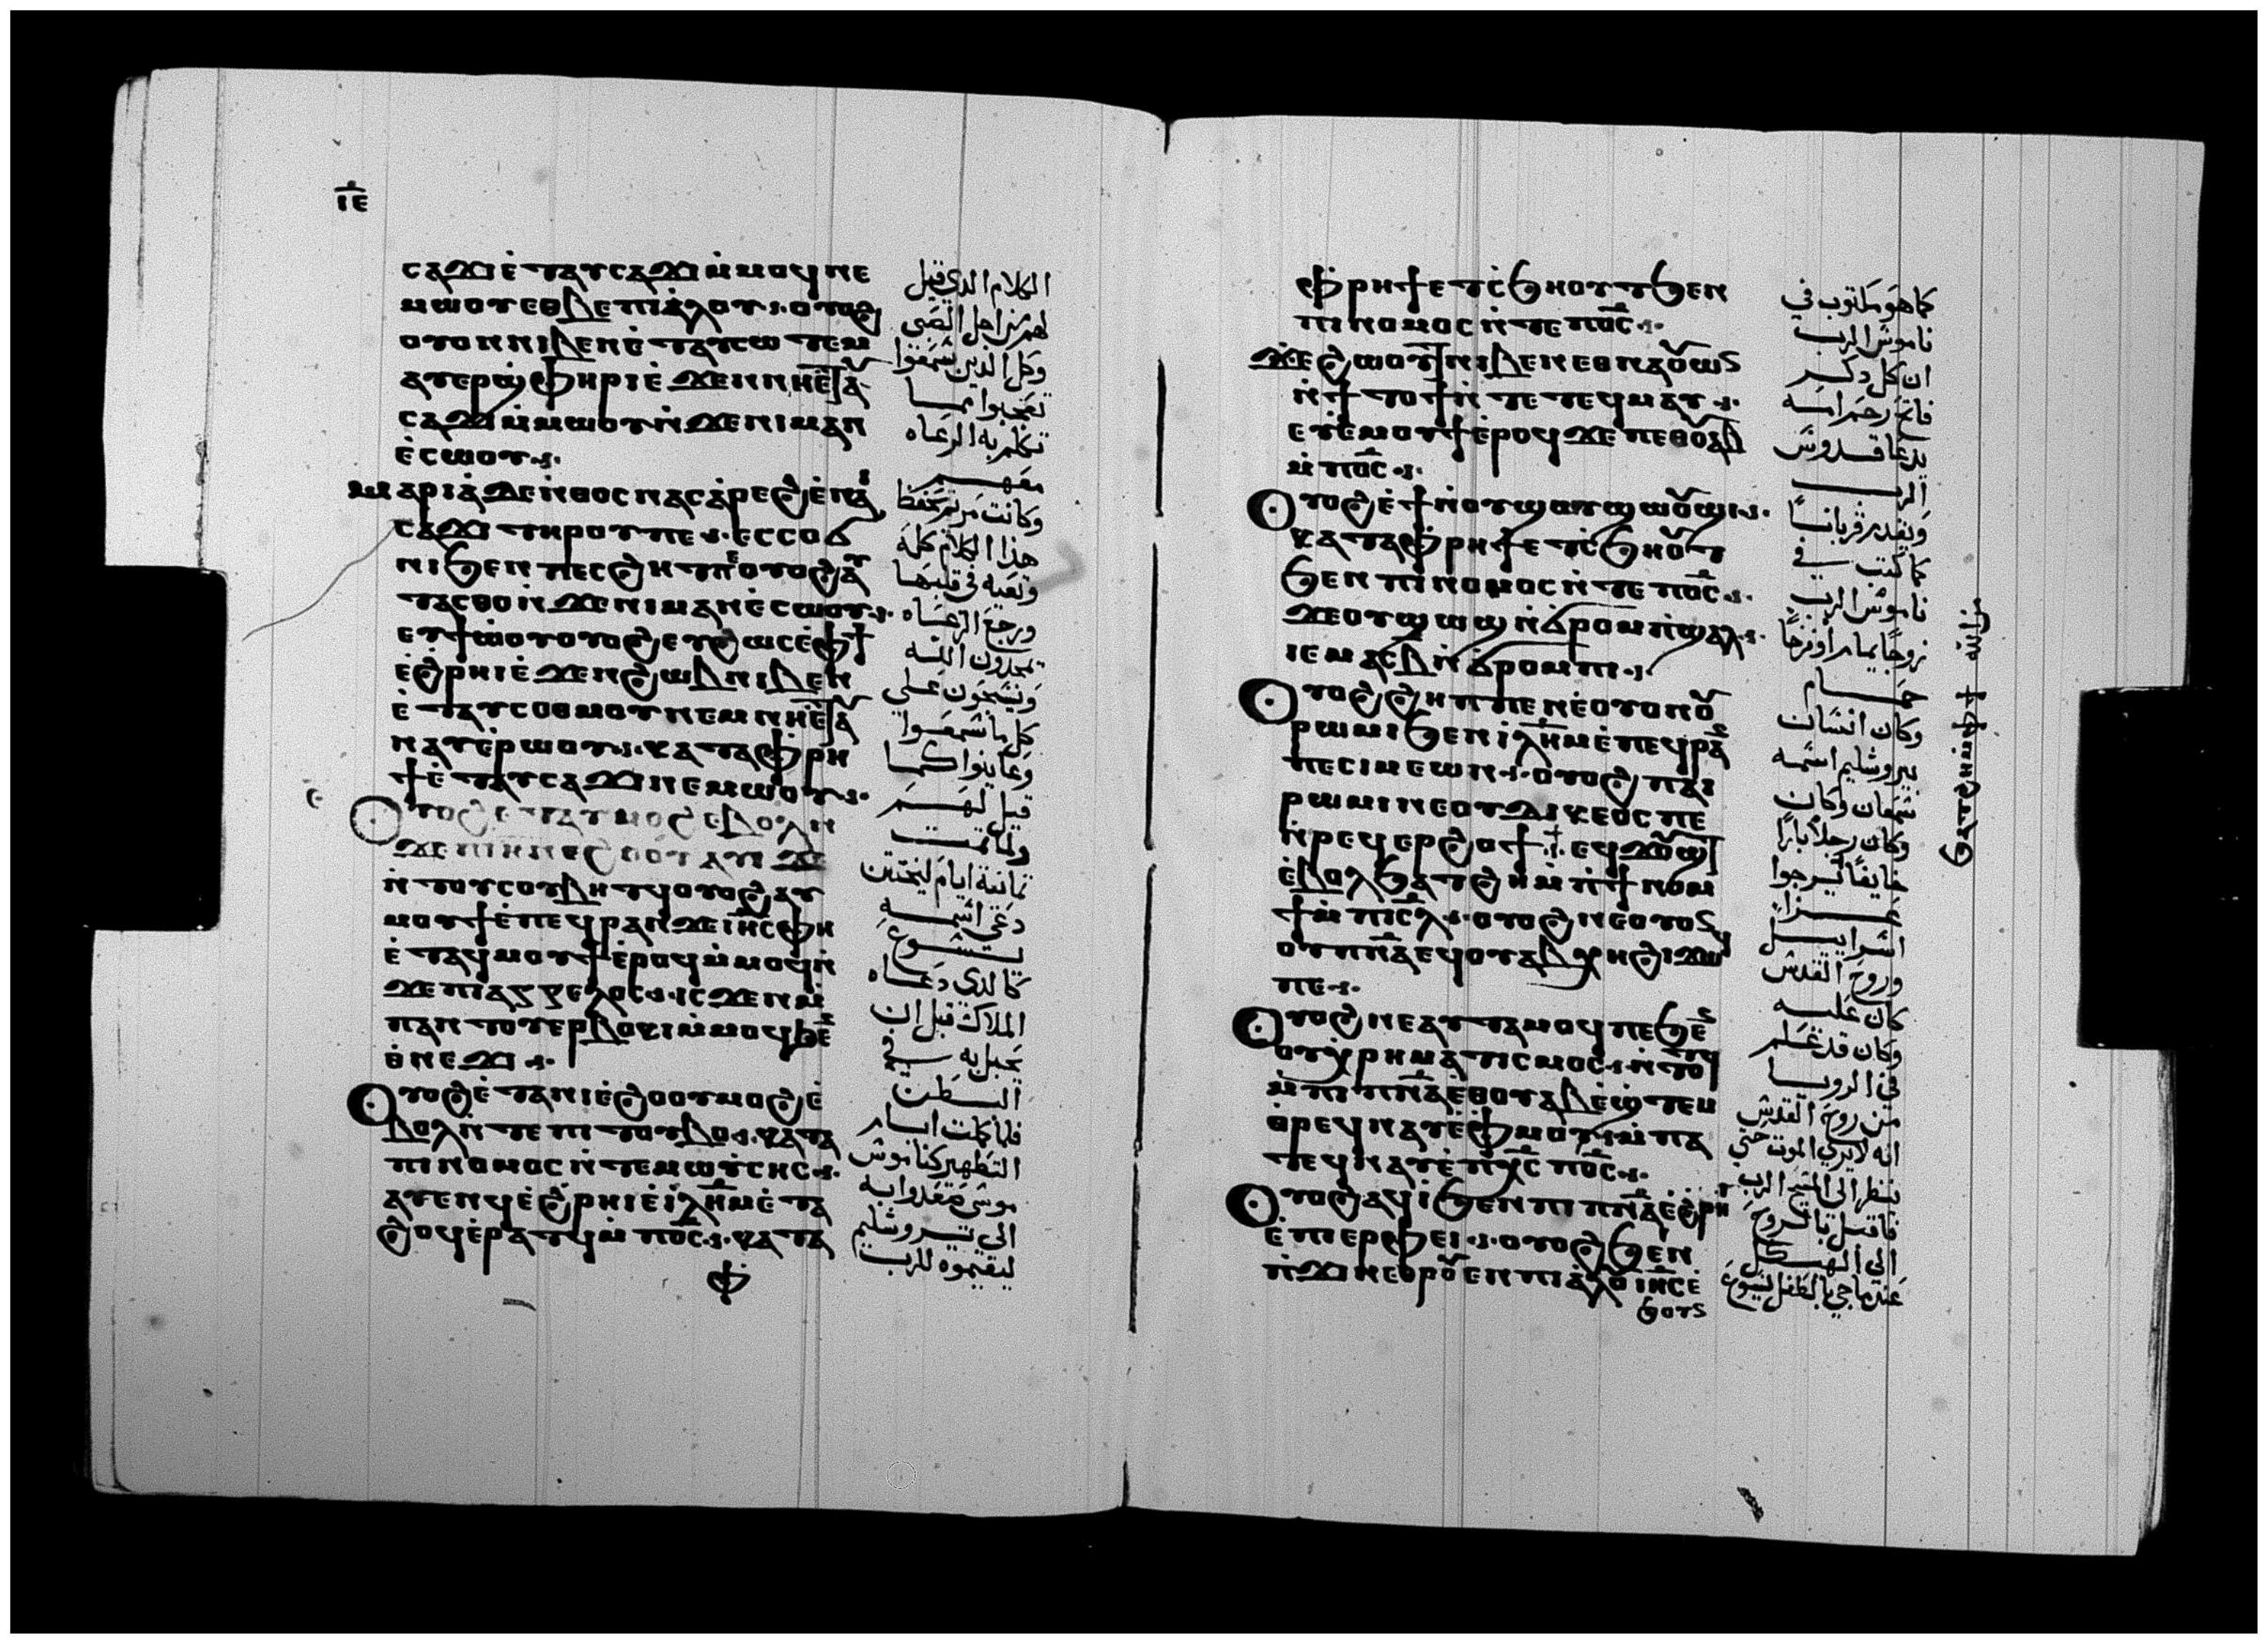 ⲓⲉ
ⲥⲁϫⲓ ⲉ̇ⲧⲁⲩⲥⲁϫⲓ ⲙ̇ⲙⲟϥ ⲛⲉ
ⲙⲱⲟⲩ ⲉⲑⲃⲉ ⲡⲓⲁ̇ⲗⲟⲩ ⲟⲩⲟϩ
ⲟⲩⲟⲛ ⲛⲓⲃⲉⲛ ⲉ̇ⲧⲁⲩⲥⲱⲧⲉⲙ
ⲁⲩⲉⲣϣ̇ⲫⲏⲣⲓ ⲉ̇ϫⲉⲛ ⲛⲏ ⲉ̇ⲧⲁⲩ
ⲥⲁϫⲓ ⲙ̇ⲙⲱⲟⲩ ⲛ̇ϫⲉ ⲛⲓⲙⲁⲛ
ⲉ̇ⲥⲱⲟⲩ
ⲙⲁⲣⲓⲁ̇ ϫⲉ ⲛ̇ⲑⲟⲥ ⲛⲁⲥⲁ̇ⲣⲉϩ ⲉ̇ⲛⲁⲓ
ⲥⲁϫⲓ ⲧⲏⲣⲟⲩ ⲡⲉ ⲉⲥⲥⲟϭ
ⲛⲓ ϧⲉⲛ ⲡⲉⲥϩⲏⲧ ⲡⲉ ⲟⲩⲟϩ ⲁⲩ
ⲧⲁⲥⲑⲟ ⲛ̇ϫⲉ ⲛⲓⲙⲁⲛⲉ̇ⲥⲱⲟⲩ
ⲉⲩϯⲱ̇ⲟⲩ ⲟⲩⲟϩ ⲉⲩϩⲱⲥ ⲉ̇ⲫϯ
ⲉ̇ϩⲣⲏⲓ ⲉ̇ϫⲉⲛ ϩⲱⲃ ⲛⲓⲃⲉⲛ
ⲉ̇ⲧⲁⲩⲥⲟⲑⲙⲟⲩ ⲛⲉⲙ ⲛⲏ ⲉ̇ⲧⲁⲩ
ⲛⲁⲩ ⲉ̇ⲣⲱⲟⲩ ⲕⲁⲧⲁ ⲫ̇ⲣⲏ
ϯ ⲉ̇ⲧⲁⲩⲥⲁϫⲓ ⲛⲉⲙⲱⲟⲩ
ⲟⲩⲟϩ ⲉⲧⲁⲩⲙⲟϩ ⲉⲃⲟⲗ ⲛ
ϫⲉ ⲡⲓⲏ ⲛⲉϩⲟⲟⲩ
ⲛ̇ⲧⲟⲩⲥⲟⲩⲃⲏⲧϥ ⲟⲩⲟϩ ⲁⲩ
ⲙⲟⲩϯ ⲉ̇ⲡⲉϥⲣⲁⲛ ϫⲉ ⲓⲏⲥ ⲫⲏ
ⲉ̇ⲧⲁϥⲙⲟⲩϯ ⲉ̇ⲣⲟϥ ⲙ̇ⲙⲟϥ ⲛ̇
ϫⲉ ⲡⲓⲁⲅⲅⲉⲗⲟⲥ ⲓⲥϫⲉⲛ ⲙ̇
ⲡⲁⲛⲧⲟⲩⲉⲣⲃⲟⲕⲓ ⲙ̇ⲙⲟϥ ϧⲉⲛ
ⲑ̇ⲛⲉϫⲓ
ⲟⲩⲟϩ ⲉ̇ⲧⲁ ⲛⲓⲉ̇ϩⲟⲟⲩ ⲙⲟϩ ⲉ̇
ⲃⲟⲗ ⲛ̇ⲧⲉ ⲡⲓⲧⲟⲩⲃⲟ ⲕⲁⲧⲁ
ⲡⲓⲛⲟⲙⲟⲥ ⲛ̇ⲧⲉ ⲙⲱⲩ̇ⲥⲏⲥ
ⲁⲩⲉⲛϥ ⲉ̇ϩⲣⲏⲓ ⲉ̇ⲓⲗⲏⲙ ⲉ̇ⲧⲁ
ϩⲟϥ ⲉ̇ⲣⲁⲧϥ ⲙ̇ⲡⲟ̅ⲥ̅ ⲕⲁⲧⲁ
ⲫ̇
الكلام الدي قيل
لهم من اجل الصبى
وكل الدين سمعوا
تعجبوا مما
تكلم به الرعاه
معهم
وكانت مريم تحفظ
هذا الكلام كله
وتعيه في قلبها
ورجع الرعاه
يمجدون الله
ويسبحون على
كل ما سمعوا
وعاينوا كما
قيل لهم
ولما تمت
تمانية ايام ليختتن
دعي اسمه
يسوع
كالدى دعاه
الملاك قبل ان
يحبل به في
البطن
فلما كملت ايام
التطهير كناموس
موسى صعدوا به
الى يروشليم
ليقيموه للرب
ⲫ̇ⲣⲏϯ ⲉⲧⲥ̇ϧⲏⲟⲩⲧ ϧⲉⲛ
ⲡⲓⲛⲟⲙⲟⲥ ⲛ̇ⲧⲉ ⲡⲟ̅ⲥ̅
ϫⲉ ϩⲱⲟⲩⲧ ⲛⲓⲃⲉⲛ ⲉⲑⲛⲁⲟⲩⲱⲛ
ⲛ̇ϯⲧⲟϯ ⲛ̇ⲧⲉ ⲧⲉϥⲙⲁⲩ
ⲉⲩⲉ̇ⲙⲟⲩϯ ⲉ̇ⲣⲟϥ ϫⲉ ⲡⲉⲑⲟⲩⲁⲃ
ⲙ̇ⲡⲟ̅ⲥ̅
ⲟⲩⲟϩ ⲉ̇ϯ ⲛ̇ⲟⲩϣⲟⲩϣⲱⲟⲩϣⲓ
ⲕⲁⲧⲁ ⲫ̇ⲣⲏϯ ⲉⲧⲥ̇ϧⲏⲟⲩⲧ
ϧⲉⲛ ⲡⲓⲛⲟⲙⲟⲥ ⲛ̇ⲧⲉ ⲡⲟ̅ⲥ̅
ϫⲉ ⲟⲩϣⲱϣ ⲛ̇ϭⲣⲟⲙⲡⲛ̇ϣⲁⲗ
ⲓⲉ ⲙⲁⲥ ⲃ̅ ⲛ̇ϭⲣⲟⲙⲡⲓ
ⲟⲩⲟϩ ϩⲏⲡⲡⲉ ⲛⲉ ⲟⲩⲟⲛ ⲟⲩ
ⲣⲱⲙⲓ ϧⲉⲛ ⲓⲗⲏⲙ ⲉ̇ⲡⲉϥⲣⲁⲛ
ⲡⲉ ⲥⲓⲙⲉⲱⲛ ⲟⲩⲟϩ ⲡⲁⲓ
ⲣⲱⲙⲓ ⲛⲉ ⲟⲩⲇⲓⲕⲉⲟⲥ ⲡⲉ
ⲛ̇ⲣⲉϥⲉⲣϩⲟϯ ⲉϥϫⲟⲩϣⲧ
ⲉ̇ⲃⲟⲗ ϧⲁⲧϩⲏ ⲙ̇ⲡ̇ϯⲛⲟⲙ
ϯ ⲙ̇ⲡⲓⲥ̅ⲗ̅ ⲟⲩⲟϩ ⲛⲉ ⲟⲩⲟⲛ
ⲟⲩⲡⲛ̅ⲁ̅ ⲉϥⲟⲩⲁⲃ ⲭⲏ ϩⲓϫⲱϥ
ⲡⲉ
ⲟⲩⲟϩ ⲛⲉ ⲁⲩⲧⲁⲙⲟϥ ⲡⲉ ϧⲉⲛ
ⲟⲩⲭ̇ⲣⲏⲙⲁⲧⲓⲥⲙⲟⲥ ⲛ̇ⲧⲟⲧϥ
ⲙ̇ⲡⲓⲡⲛ̅ⲁ̅ ⲉⲑⲟⲩⲁⲃ ⲉ̇ϣ̇ⲧⲉⲙ
ⲑ̇ⲣⲉϥⲛⲁⲩ ⲉ̇ⲫ̇ⲙⲟⲩ ⲙ̇ⲡⲁ
ⲧⲉϥⲛⲁⲩ ⲉ̇ⲡⲭ̅ⲥ̅ ⲡⲟ̅ⲥ̅
ⲟⲩⲟϩ ⲁϥⲓ̇ ϧⲉⲛ ⲡⲓⲡⲛ̅ⲁ̅ ⲉ̇ϩⲣⲏⲓ
ⲉ̇ⲡⲓⲉⲣⲫⲉⲓ ⲟⲩⲟϩ ϧⲉⲛ
ⲡ̇ϫⲓⲛⲑⲣⲟⲩⲉⲛ ⲡⲓⲁ̇ⲗⲟⲩ ⲓⲏⲥ ⲉ̇
ϧⲟⲩⲛ
كما هو مكتوب في
ناموس الرب
ان كل دكر
فاتح رحم امه
يدعا قدوس
الرب
ويقدم قربانًا
كما كتب في
ناموس الرب
زوجًا يمام او فرخًا
حمام
وكان انسان
بيروشليم اسمه
سمعان وكان
وكان رجلا بارًا
خايفًا يرجوا
عزا
اسراييل
وروح القدس
كان عليه
وكان قد علم
في الرويا
من روح القدس
انه لا يرى الموت حتى
ينظر الى المسيح الرب
فاقبل بالروح
الى الهيكل
عندما جي بالطفل يسوع